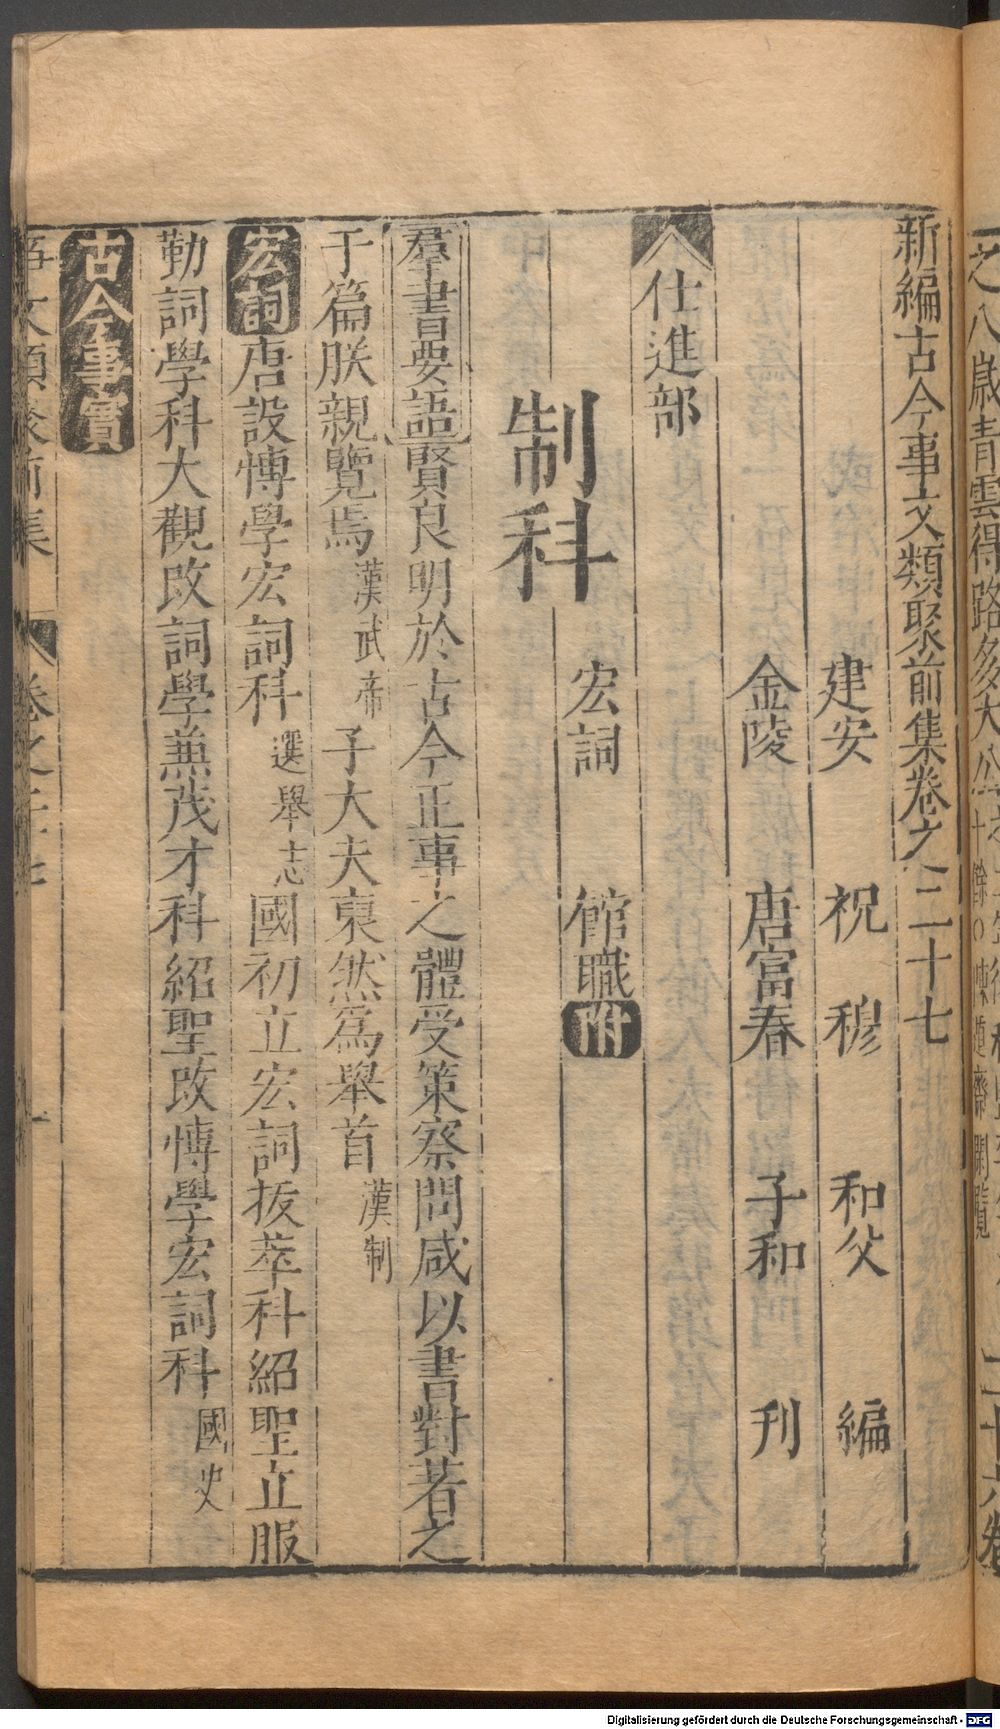 新編古今事文類聚前集卷之二十七
建安 祝 穆 和父 編
金陵 唐富春 子和 刊
仕進部
制科 宏詞 館職附
羣書要語賢良明於古今正事之體受策察問咸以書對著之
于篇朕親覽焉漢武帝子大夫裒然爲舉首漢制
宏詞唐設博學宏詞科選舉志國初立宏詞拔萃科紹聖立服
勤詞學科大觀改詞學兼茂才科紹聖改博學宏詞科國史
古今事實
Digitalisierung gefördert durch die Deutsche Forschungsgemeinschaft - DFG